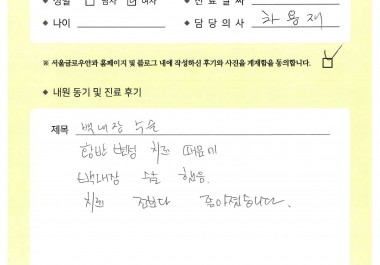 ◆ 성별 □ 남자 ☑ 여자 ◆ 진료날짜
◆ 나이 ◆ 담당의사 차흥재
※ 서울글로우안과 홈페이지 및 블로그 내에 작성하신 후기와 사진을 게재함을 동의합니다.
◆ 내원 동기 및 진료 후기
제목 백내장 수술
황반 변성 치료 때문에
백내장 수술 했음.
치료 전보다 좋아졌습니다.